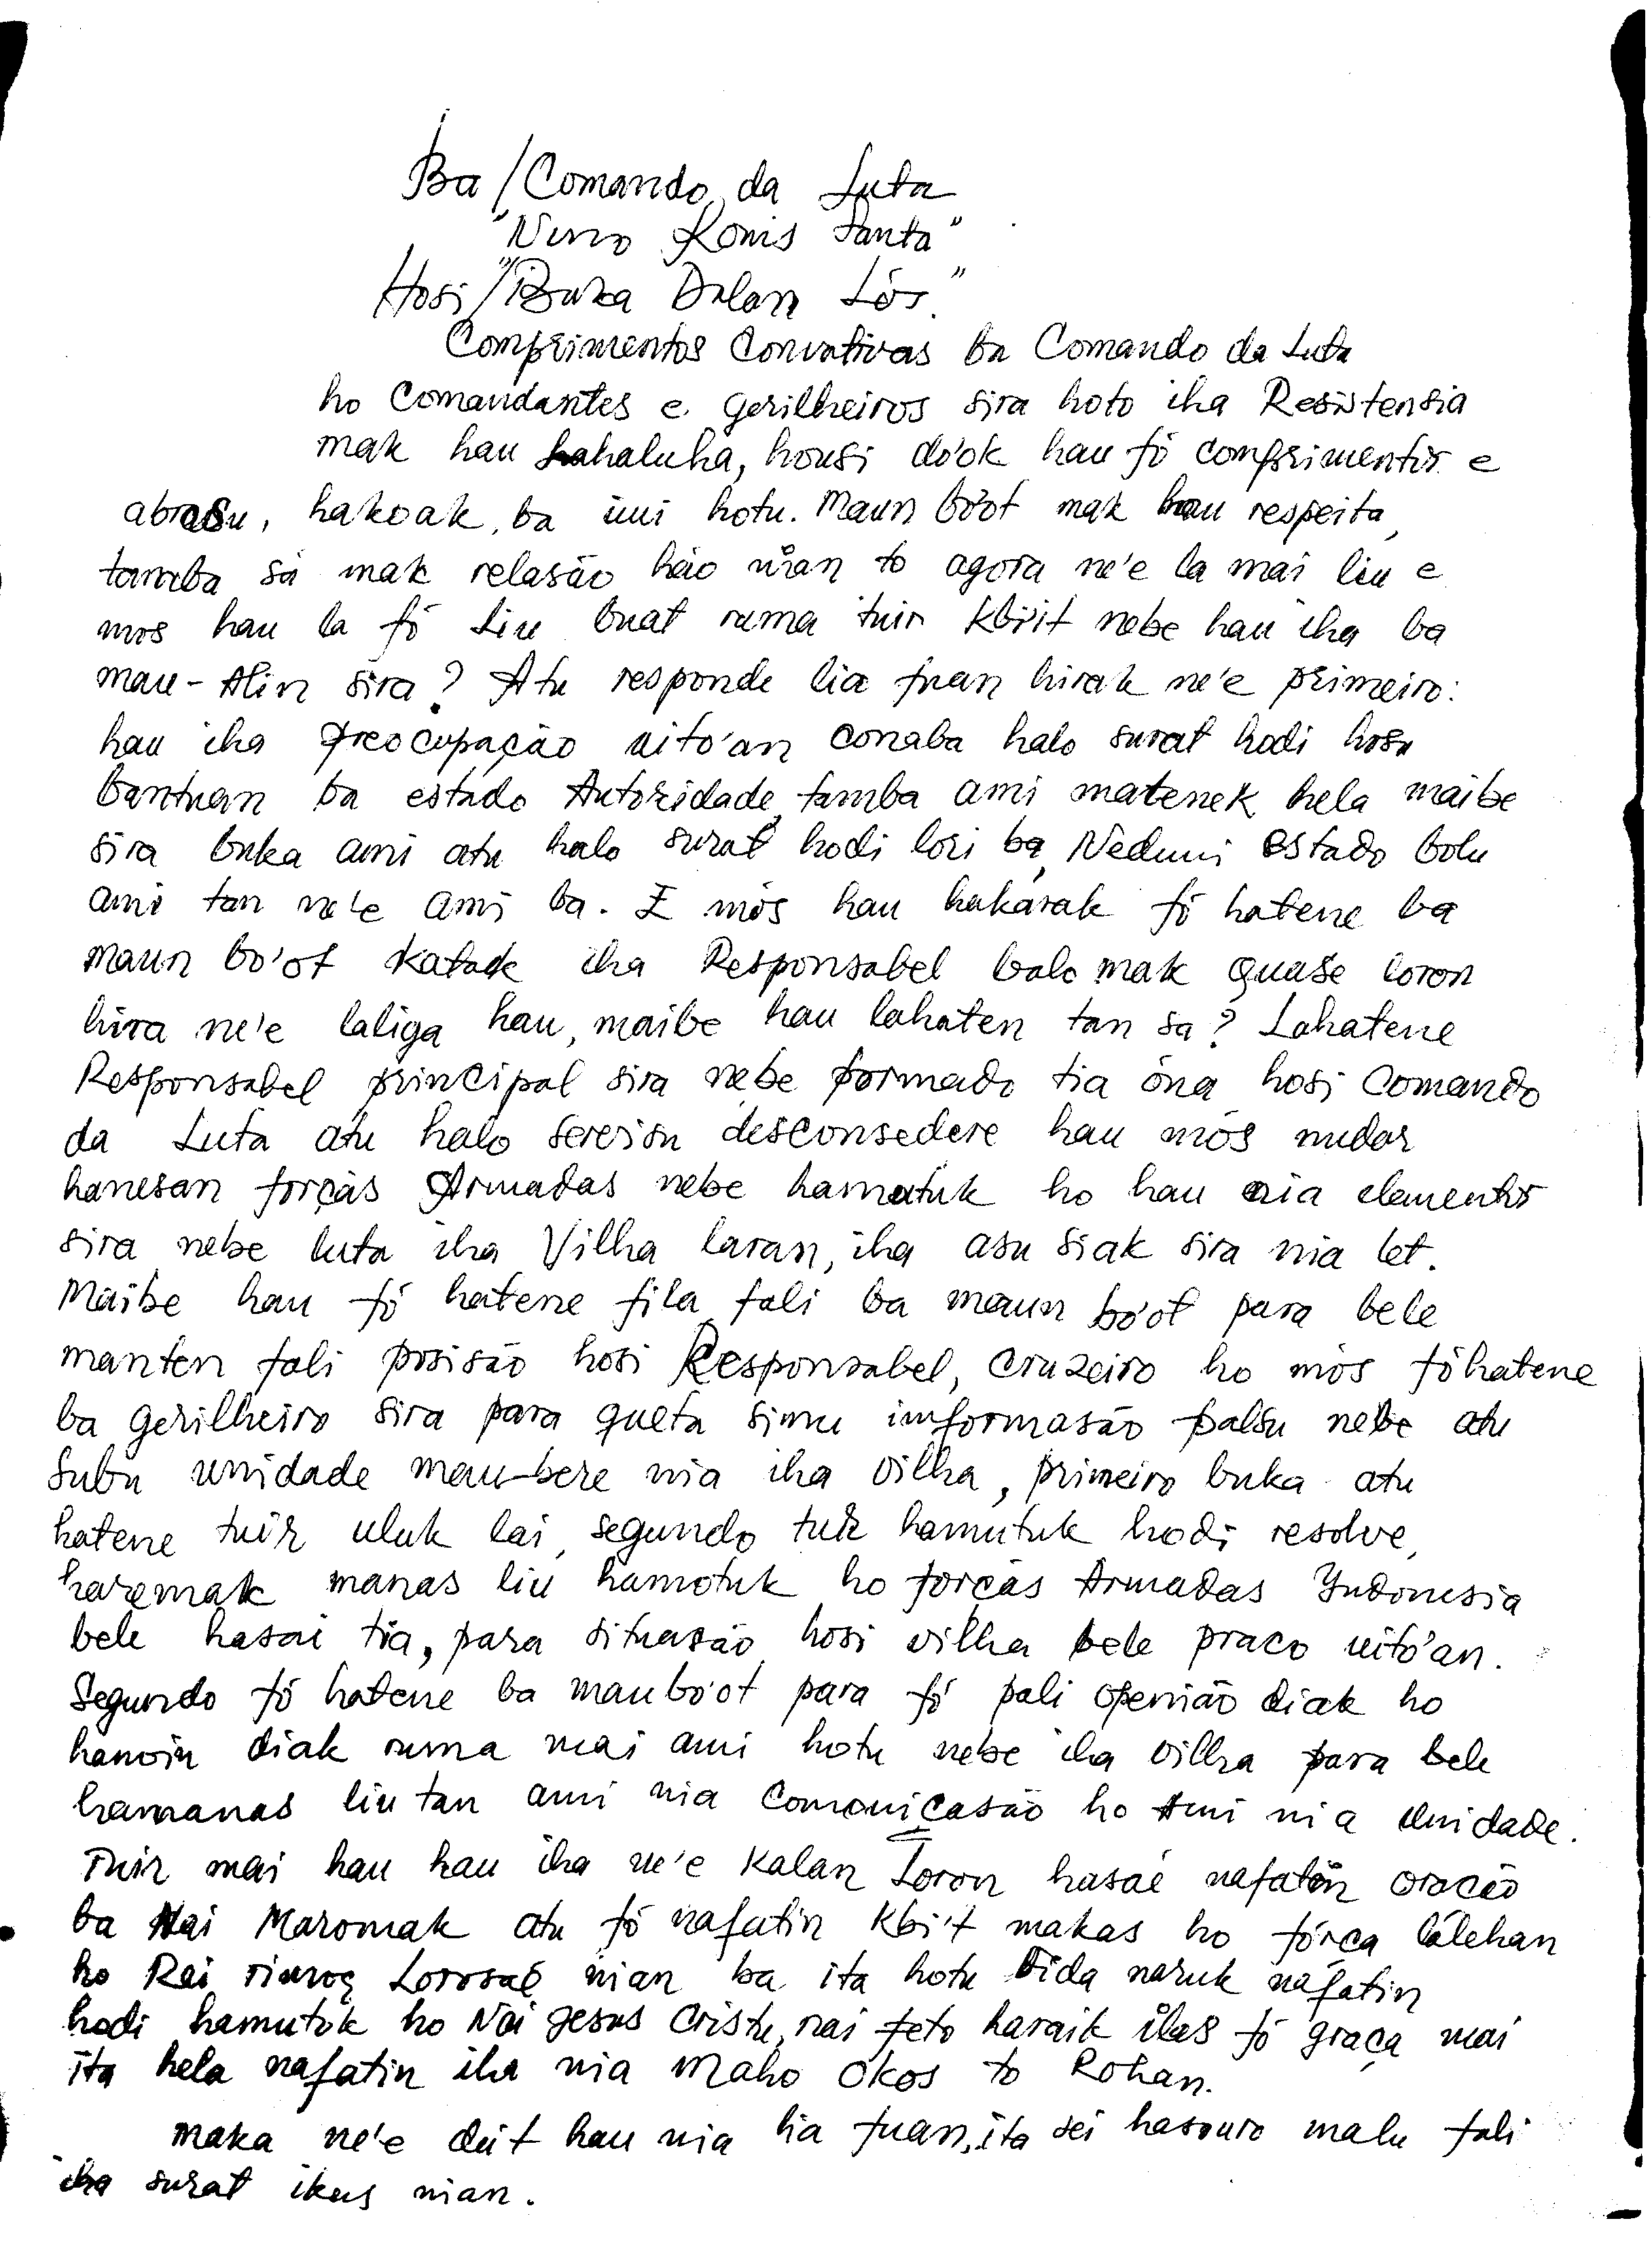 Ba/Comando da Luta
"Nino Konis Santa"
Hosi/"Buka Dalan Lós."
Comprimentos Convativas ba Comando da Luta
ho Comandantes e gerilheiros sira hoto iha Resistensia
mak hau hahaluha, housi do'ok hau fó comprimentos e
abrasu, hakoak, ba imi hotu. Maun bo'ot mak hau respeita,
tamba sá mak relasão háo uran to agora ne'e la mai liu e
mos hau la fó liu buat ruma tuir kbi'it nebe hau iha ba
mau-Alin sira? Atu responde lia fuan hirak ne'e primeiro:
hau iha preocupação uito'an conaba halo surat hodi hosu
bantuan ba estado Autoridade, tamba ami matenek hela maibe
sira buka ami atu halo surat hodi lori ba, Neduni estado bolu
ami tan ne'e ami ba. E mós hau hakarak fó hatene ba
maun bo'ot katak iha Responsabel balo mak quase loron
hira ne'e laliga hau, maibe hau lahaten tan sa? Lahatene
Responsabel principal sira nebe formado tia óna hosi Comando
da Luta atu halo serviso desconsedere hau mós nudar
hanesan forças Armadas nebe hamutuk ho hau nia elementos
sira nebe luta iha Vilha laran, iha asu siak sira nia let.
Maibe hau fó hatene fila fali ba maun bo'ot para bele
manten fali posisão hosi Responsabel, cruzeiro ho mós fó hatene
ba gerilheiro sira para queta simu imformasão falsu nebe atu
subu unidade mau-bere nia iha vilha, primeiro buka atu
hatene tuir uluk lai, segundo tur hamutuk hodi resolve,
haremak manas liu hamotuk ho forças Armadas Indonesia
bele hasai tia, para situasão hosi vilha bele praco uito'an.
Segundo fó hatene ba maubo'ot para fó fali openião diak ho
hanoin diak ruma mai ami hotu nebe iha vilha para bele
hamanas liu tan ami nia Comonicasão ho Ami nia unidade.
Tuir mai hau hau iha ne'e kalan Loron hasae nafatin oração
ba Nai Maromak atu fó nafatin kbi't makas ho fórça lálehan
ho Rai Lorosaé nian ba ita hotu Vida naruk nafatin
hodi hamutuk ho Nai Jesus Cristu, nai feto haraik ilas fó graça mai
ita hela nafatin iha nia Maho Okos to Rohan.
maka ne'e deit hau nia lia fuan, ita sei hasouro malu fali
iha surat ikus nian.